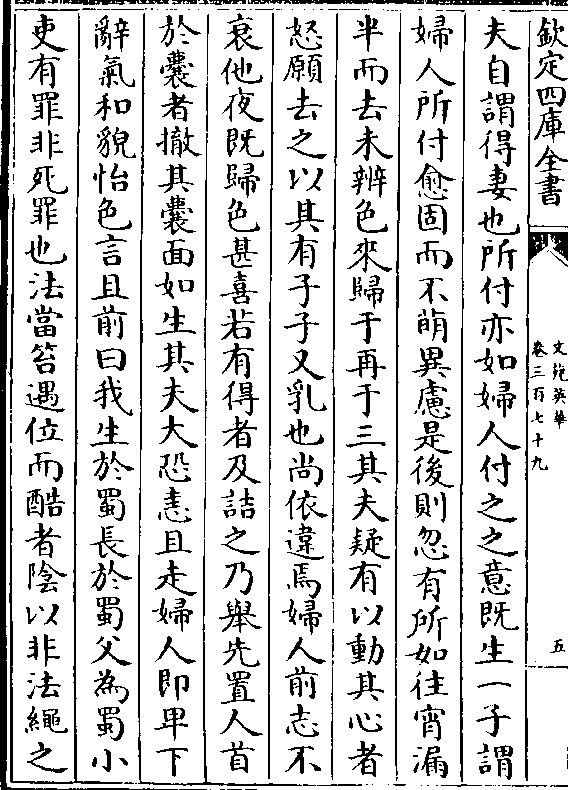 欽定四庫全書
文苑英華
卷三百七十九
五
夫自謂得妻也所付亦如婦人付之之意既生一子謂
婦人所付愈固而不萌異慮是後則忽有所如往宵漏
半而去未辨色來歸于再于三其夫疑有以動其心者
怒願去之以其有子子又乳也尚依違焉婦人前志不
衰他夜既歸色甚喜若有得者及詰之乃舉先置人首
於囊者撤其囊面如生其夫大恐恚且走婦人即卑下
辭氣和貌怡色言且前曰我生於蜀長於蜀父為蜀小
吏有罪非死罪也法當笞遇位而酷者陰以非法繩之